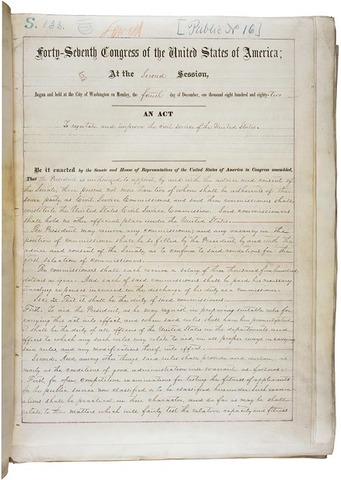 S. 133. [Public No 16]
Forty-Seventh Congress of the United States of America;
At the Second Session,
Begun and held at the City of Washington on Monday, the fourth day of December, one thousand eight hundred and eighty-two
AN ACT
To regulate and improve the civil service of the United States.
Be it enacted by the Senate and House of Representatives of the United States of America in Congress assembled,
That the President is authorized to appoint, by and with the advice and consent of
the Senate, three persons, not more than two of whom shall be adherents of the
same party, as Civil Service Commissioners, and said three commissioners shall
constitute the United States Civil Service Commission. Said commissioners
shall hold no other official place under the United States.
The President may remove any commissioner; and any vacancy in the
position of commissioner shall be so filled by the President, by and with the
advice and consent of the Senate, as to conform to said conditions for the
first selection of commissioners.
The commissioners shall each receive a salary of three thousand five hundred
dollars a year. And each of said commissioners shall be paid his necessary
traveling expenses incurred in the discharge of his duty as a commissioner.
Sec. 2. That it shall be the duty of said commissioners:
First. To aid the President, as he may request, in preparing suitable rules for
carrying this act into effect, and when said rules shall have been promulgated
it shall be the duty of all officers of the United States in the departments and
offices to which any such rules may relate to aid, in all proper ways, in carrying
said rules, and any modifications thereof, into effect.
Second. And, among other things, said rules shall provide and declare, as
nearly as the conditions of good administration will warrant, as follows:
First, for open, competitive examinations for testing the fitness of applicants
for the public service now classified or to be classified hereunder. Such examin-
ations shall be practical in their character, and so far as may be shall
relate to those matters which will fairly test the relative capacity and fitness